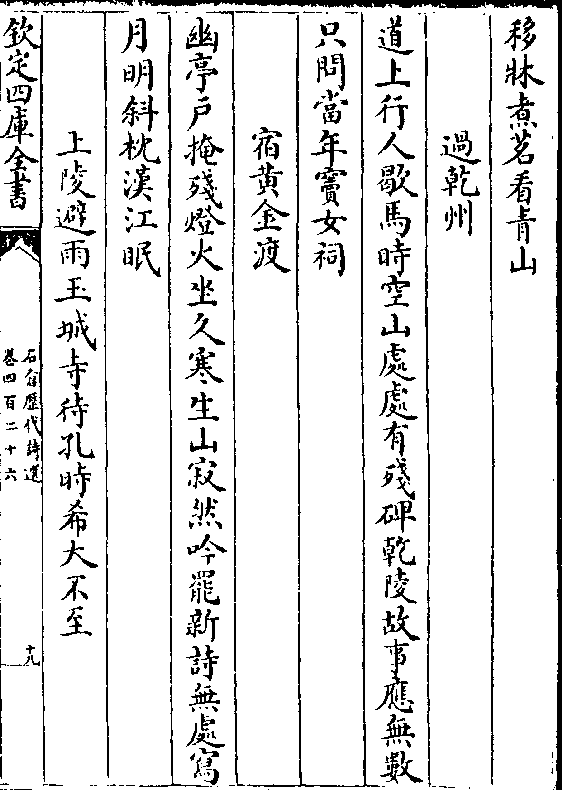 移牀煮茗看青山
過乾州
道上行人歇馬時空山處處有殘碑乾陵故事應無數
只問當年竇女祠
宿黄金渡
幽亭戸掩殘燈火坐久寒生山寂然吟罷新詩無處寫
月明斜枕漢江眠
上陵避雨玉城寺待孔時希大不至
欽定四庫全書
石倉歷代詩選
卷四百二十六
十九